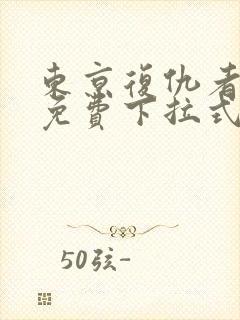 東京復仇者
免費下拉式
50弦-